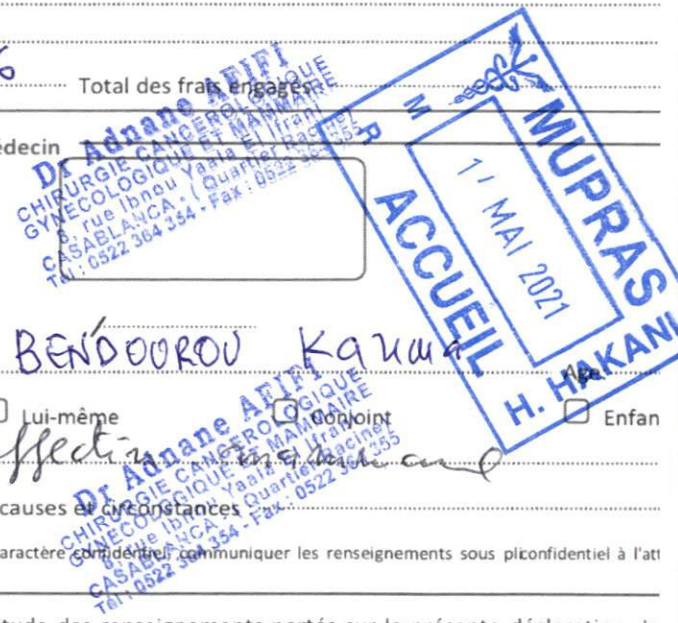 6 Total des frais engagés
édecin
Dr Adnane AFIFI
CHIRURGIE CANCEROLOGIQUE
GYNECOLOGIQUE ET MAMMAIRE
6, rue Ibnou Yaala El Ifrani
CASABLANCA - ( Quartier Racine )
Tél : 0522 364 354 - Fax : 0522 364 355
MUPRAS
MAI 2021
ACCUEIL
H. HAKANI
BENDOUROU
Age
Lui-même Conjoint Enfan
ffection mammaire
Dr Adnane AFIFI
CHIRURGIE CANCEROLOGIQUE
GYNECOLOGIQUE ET MAMMAIRE
6, rue Ibnou Yaala El Ifrani
CASABLANCA - ( Quartier Racine )
Tél : 0522 364 354 - Fax : 0522 364 355
causes et circonstances :
aractère confidentiel, communiquer les renseignements sous pli confidentiel à l'att